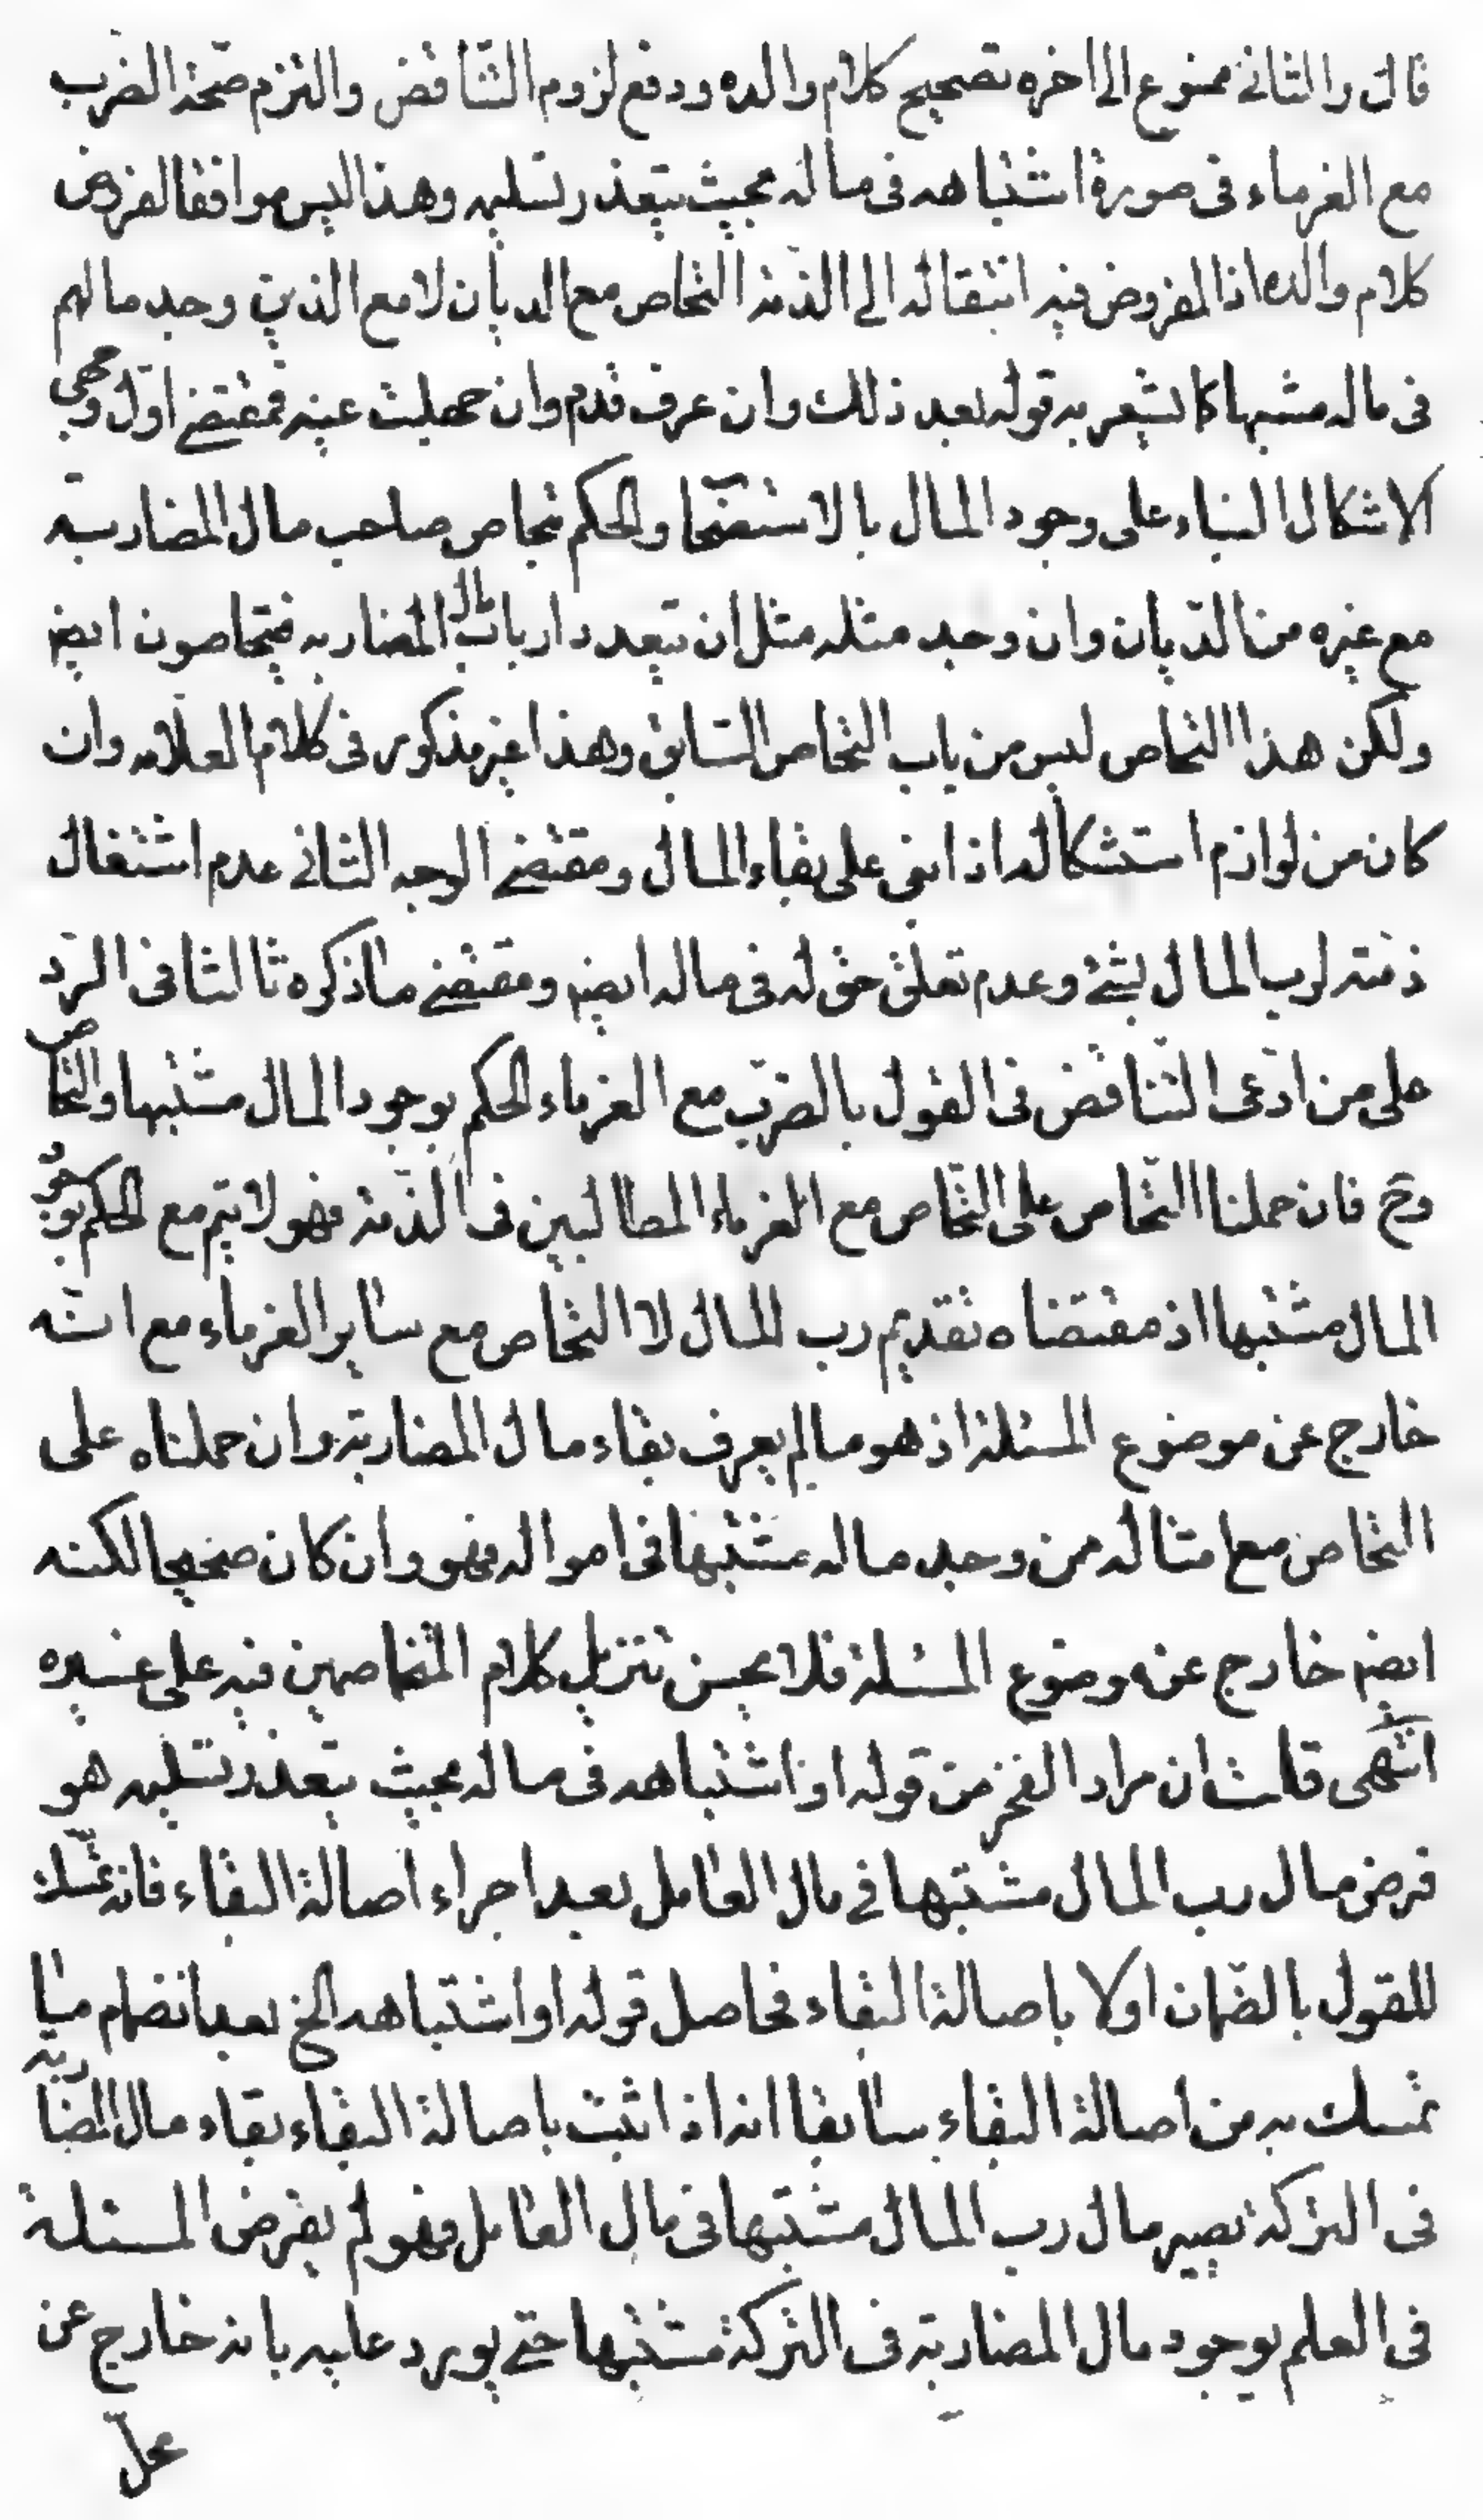 قال والثانى ممنوع الى اخره تصحيح كلام والده ودفع لزوم التناقض والتزم صحة الضرب
مع الغرماء فى صورة اشتباهه فى ماله بحيث يتعذر تسليمه وهذا ليس موافقا لفروض
كلام والده اذ المفروض فيه انتقاله الى الذمة التحاص مع الديان لا مع الذين وجد مالهم
فى ماله مشبها كما يشعر به قوله بعد ذلك وان عرف قدم وان جهلت عينه فمقتضى اول وجهى
الاشكال البناء على وجود المال بالاستصحا والحكم بتحاص صاحب مال المضاربة
مع غيره من الديان وان وجد مثله مثل ان يتعدد ارباب مال المضاربه فيتحاصون ايضا
ولكن هذا التحاص ليس من باب التحاص السابق وهذا غير مذكور فى كلام العلامه وان
كان من لوازم استشكاله اذ ابنى على بقاء المال ومقتضى الوجه الثانى عدم اشتغال
ذمته لرب المال بشئ وعدم تعلق حق له فى ماله ايضا ومقتضى ما ذكره ثالثا فى الرد
على من ادعى التناقض فى القول بالضرب مع الغرماء الحكم بوجود المال مشتبها والتحاص
وح فان حملنا التحاص على التحاص مع الغرماء المطالبين فى الذمة فهو لا يتم مع الحكم بوجود
المال مشتبها اذ مقتضاه تقديم رب المال لا التحاص مع ساير الغرماء مع انه
خارج عن موضوع المسئلة اذ هو ما لم يعرف بقاء مال المضاربة وان حملناه على
التحاص مع امثاله ممن وجد ماله مشتبها فى امواله فهو وان كان صحيحا لكنه
ايضا خارج عن موضوع المسئلة فلا يحسن تنزيل كلام المتخاصمين فيه على غيره
انتهى قلت ان مراد الفخر من قوله او اشتباهه فى ماله بحيث يتعذر تسليمه هو
فرض مال رب المال مشتبها فى مال العامل بعد اجراء اصالة البقاء فانه تمسك
للقول بالضمان اولا باصالة البقاء فحاصل قوله او اشتباهه الخ بعد انضمام ما
تمسك به من اصالة البقاء سابقا انه اذا ثبت باصالة البقاء بقاء مال المضاربة
فى التركة يصير مال رب المال مشتبها فى مال العامل فهو لم يفرض المسئلة
فى العلم بوجود مال المضاربة فى التركة مشتبها حتى يورد عليه بانه خارج عن
محل